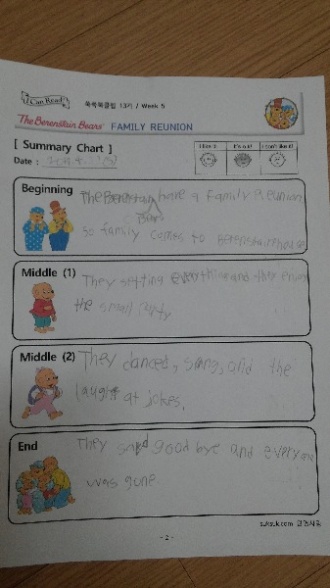 I Can Read!
쑥쑥북클럽 13기 / Week 5
The Berenstain Bears' FAMILY REUNION
[ Summary Chart ]
Date :
I like it It's o.k! I don't like it!
Beginning
The have a family reunion
Bear
so family comes to house
Middle (1)
They setting everything and they enjoy
the small party
Middle (2)
They danced, sang, and the
laugh at jokes.
End
They said good bye and everyone
was gone
suksuk.com
- 2 -